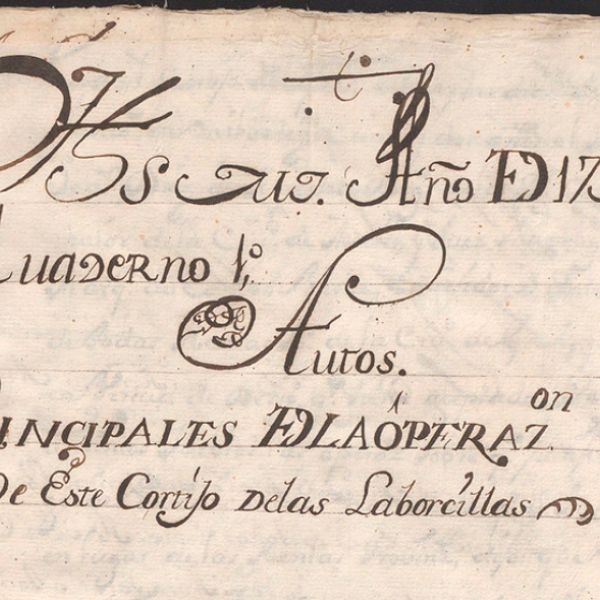 Año DE 17
Cuaderno 1º,
Autos.
RINCIPALES DE LA ÓPERAZ.on
De Este Cortijo Delas Laborcillas